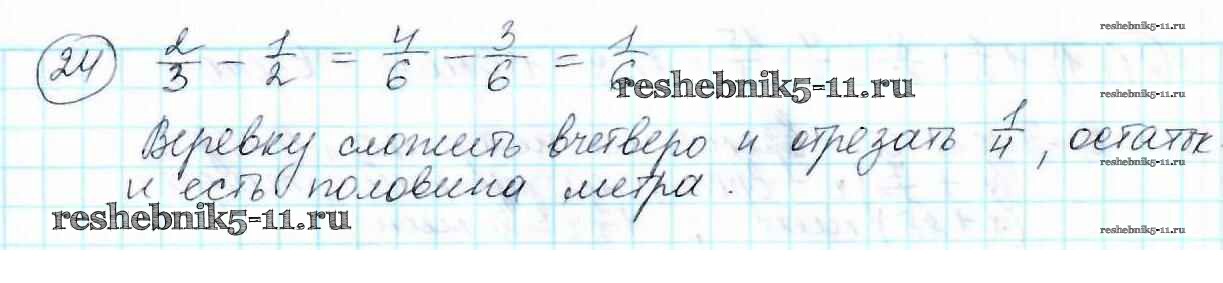 reshebnik5-11.ru
24 2/3 - 1/2 = 4/6 - 3/6 = 1/6
reshebnik5-11.ru
reshebnik5-11.ru
Веревку сложить вчетверо и отрезать 1/4, остаток
reshebnik5-11.ru
и есть половина метра.
reshebnik5-11.ru
reshebnik5-11.ru